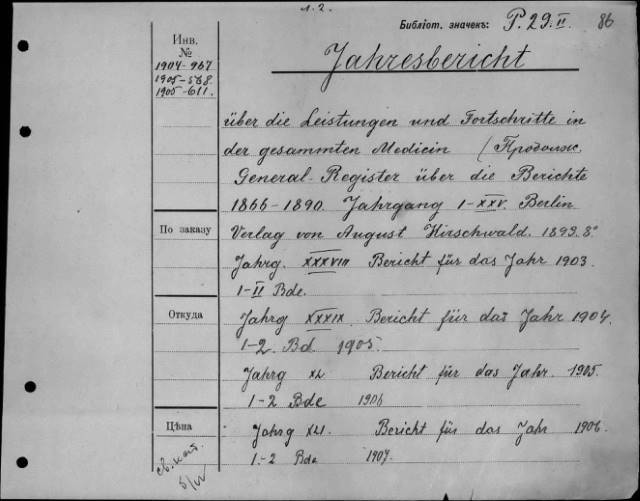 л. 2.
Библіот. значекъ: P. 29. II. 86
Инв.
№
1904-967
1905-568
1905-611.
Jahresbericht
über die Leistungen und Fortschritte in
der gesammten Medicin / (Продолж.
General-Register über die Berichte
1866-1890. Jahrgang 1-XXV. Berlin
Verlag von August Hirschwald. 1893. 8°
Jahrg. XXXVIII Bericht für das Jahr 1903.
1-II Bde.
Jahrg XXXIX. Bericht für das Jahr 1904.
1-2. Bd. 1905.
Jahrg XL Bericht für das Jahr. 1905.
1-2 Bde 1906
Jahrg XLI. Bericht für das Jahr 1906.
1.-2 Bde 1907.
По заказу
Откуда
Цѣна
св. кат.